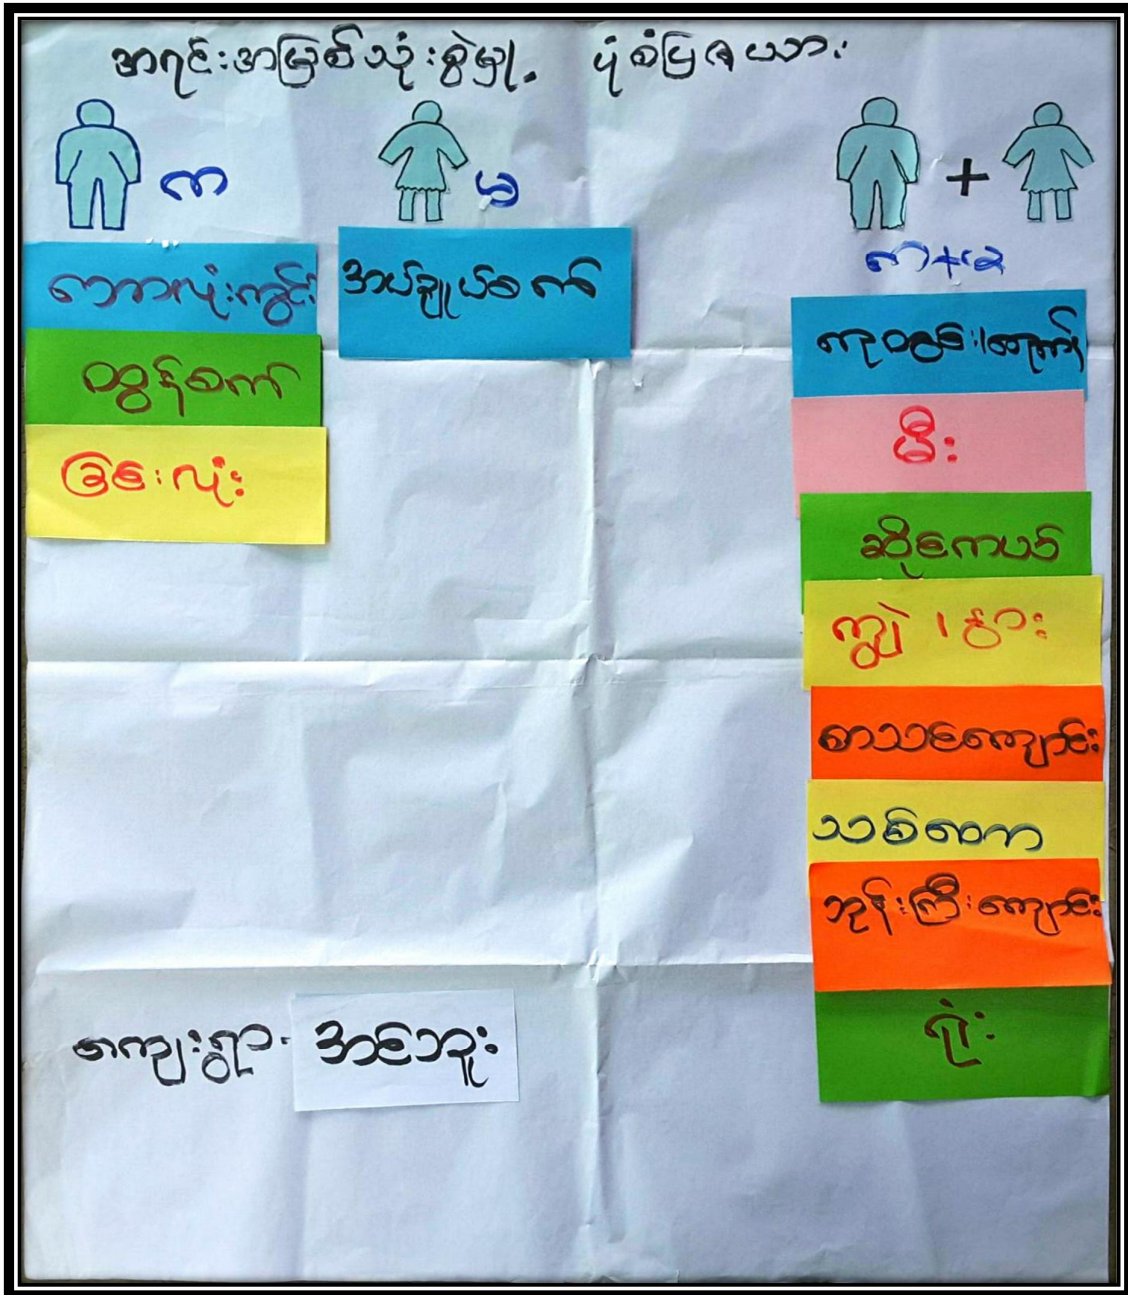 အရင်းအမြစ်သုံးစွဲမှု ပုံစံပြဇယား
က
ခ
+
က+ခ
ဘောလုံးကွင်း
ထွန်စက်
ခြင်းလုံး
အပ်ချုပ်စက်
မီး
ဆိုင်ကယ်
ကျွဲ၊နွား
စာသင်ကျောင်း
သစ်တော
ဘုန်းကြီးကျောင်း
ရုံး
ကျေးရွာ- အင်ဘူး